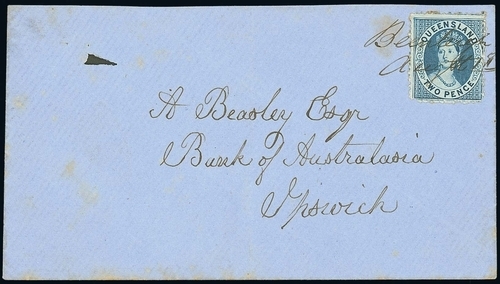 QUEENSLAND
TWO PENCE
A Beasley Esqr
Bank of Australasia
Ipswich